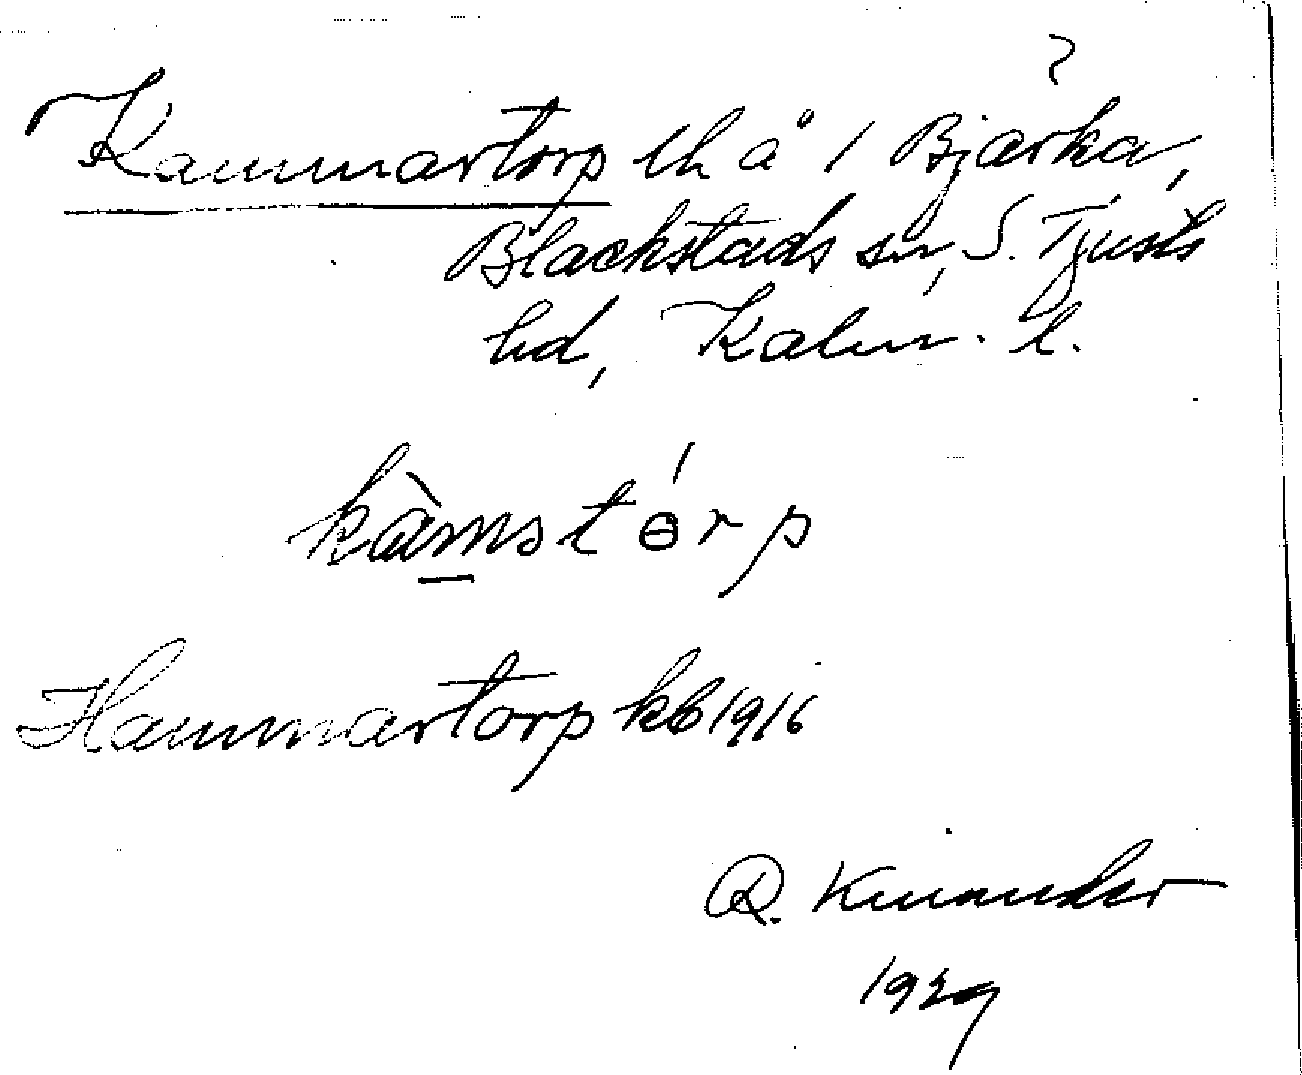 ?
Kammartorp lh å 1 Bjärka,
Blackstads sn, S. Tjusts
hd, Kalm. l.
kàmstɵ́rp
Hammartorp kb 1916
R. Kinander
1929